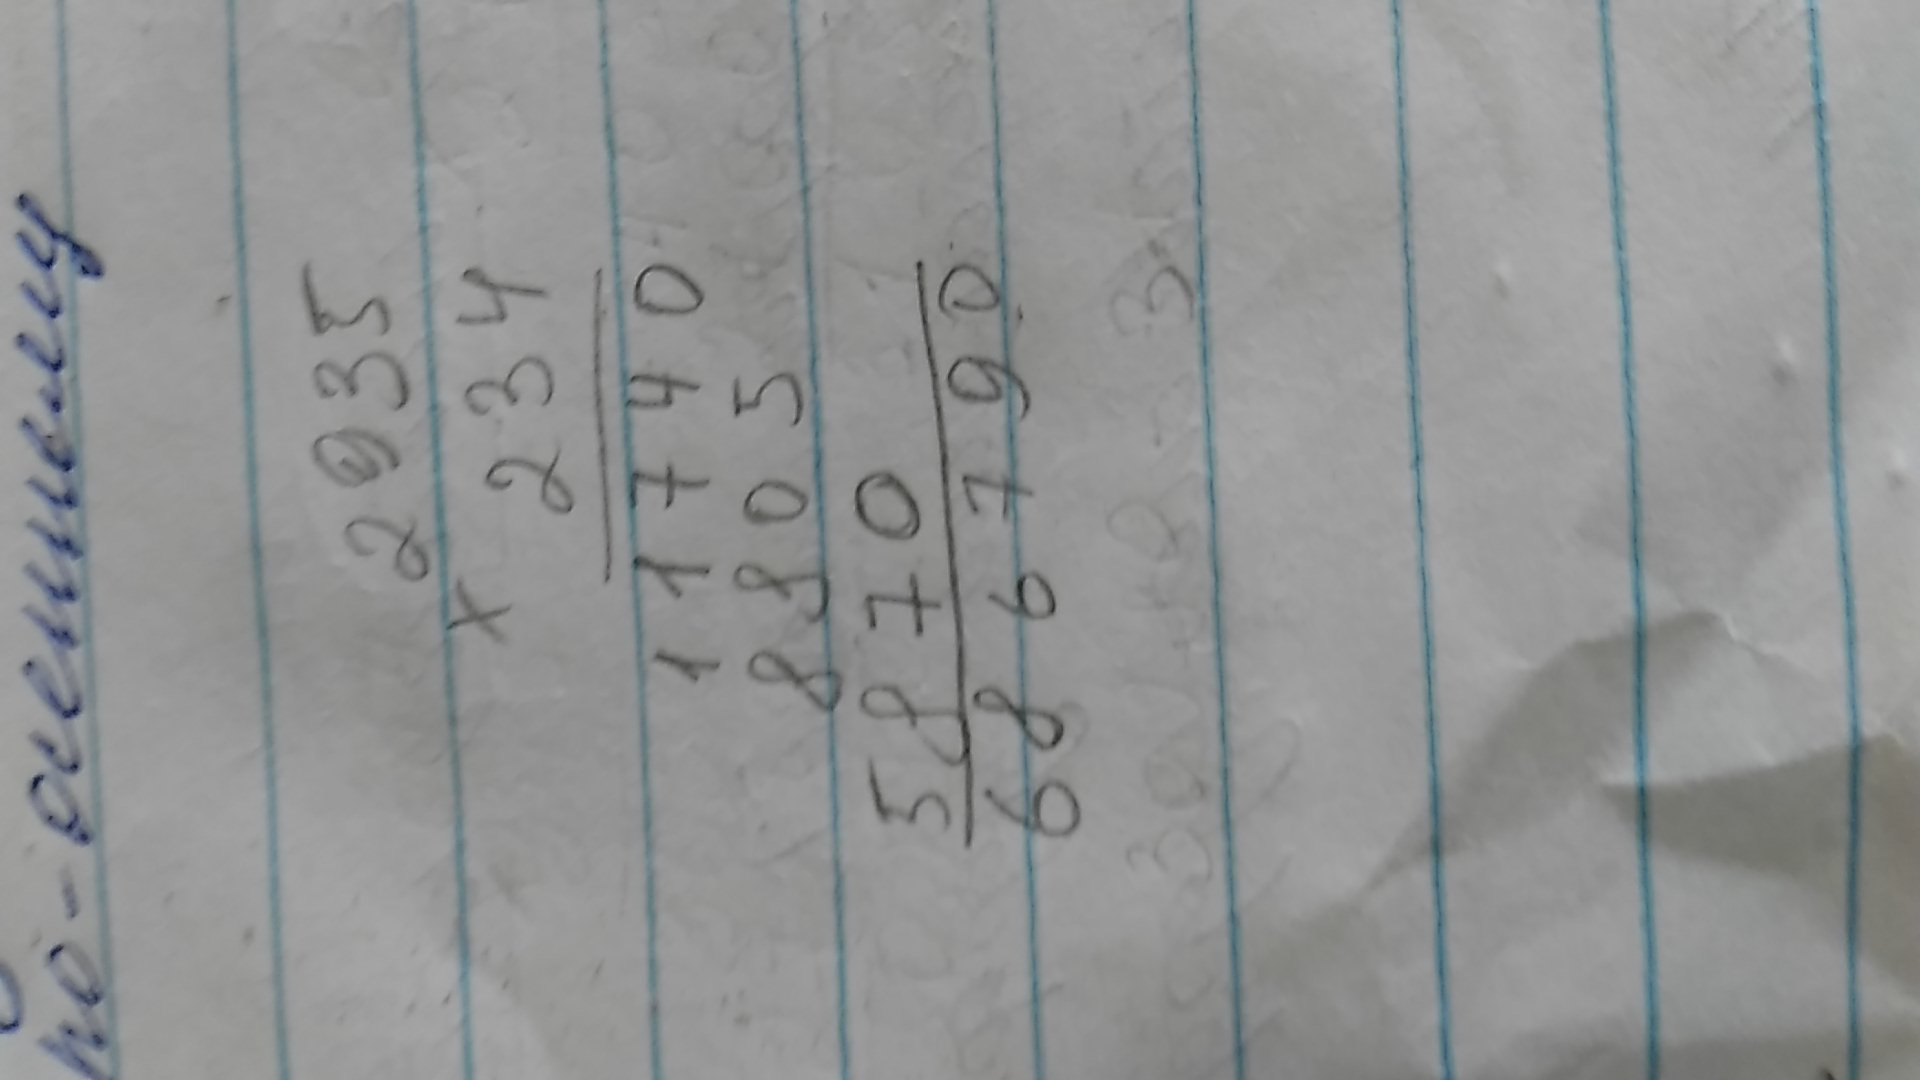 по-осеннему
2935
× 234
11740
8805
5870
686790